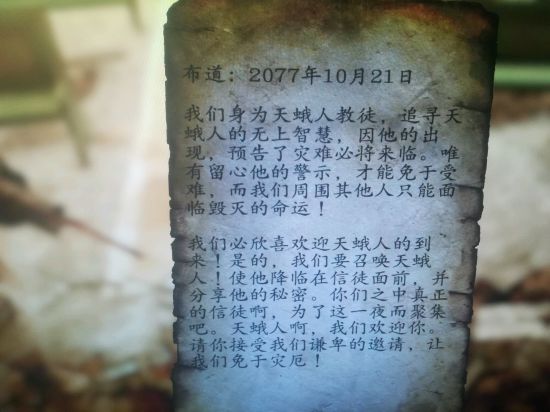 布道：2077年10月21日
我们身为天蛾人教徒，追寻天
蛾人的无上智慧，因他的出
现，预告了灾难必将来临。唯
有留心他的警示，才能免于受
难，而我们周围其他人只能面
临毁灭的命运！
我们必欣喜欢迎天蛾人的到
来！是的，我们要召唤天蛾
人！使他降临在信徒面前，并
分享他的秘密。你们之中真正
的信徒啊，为了这一夜而聚集
吧。天蛾人啊，我们欢迎你。
请你接受我们谦卑的邀请，让
我们免于灾厄！